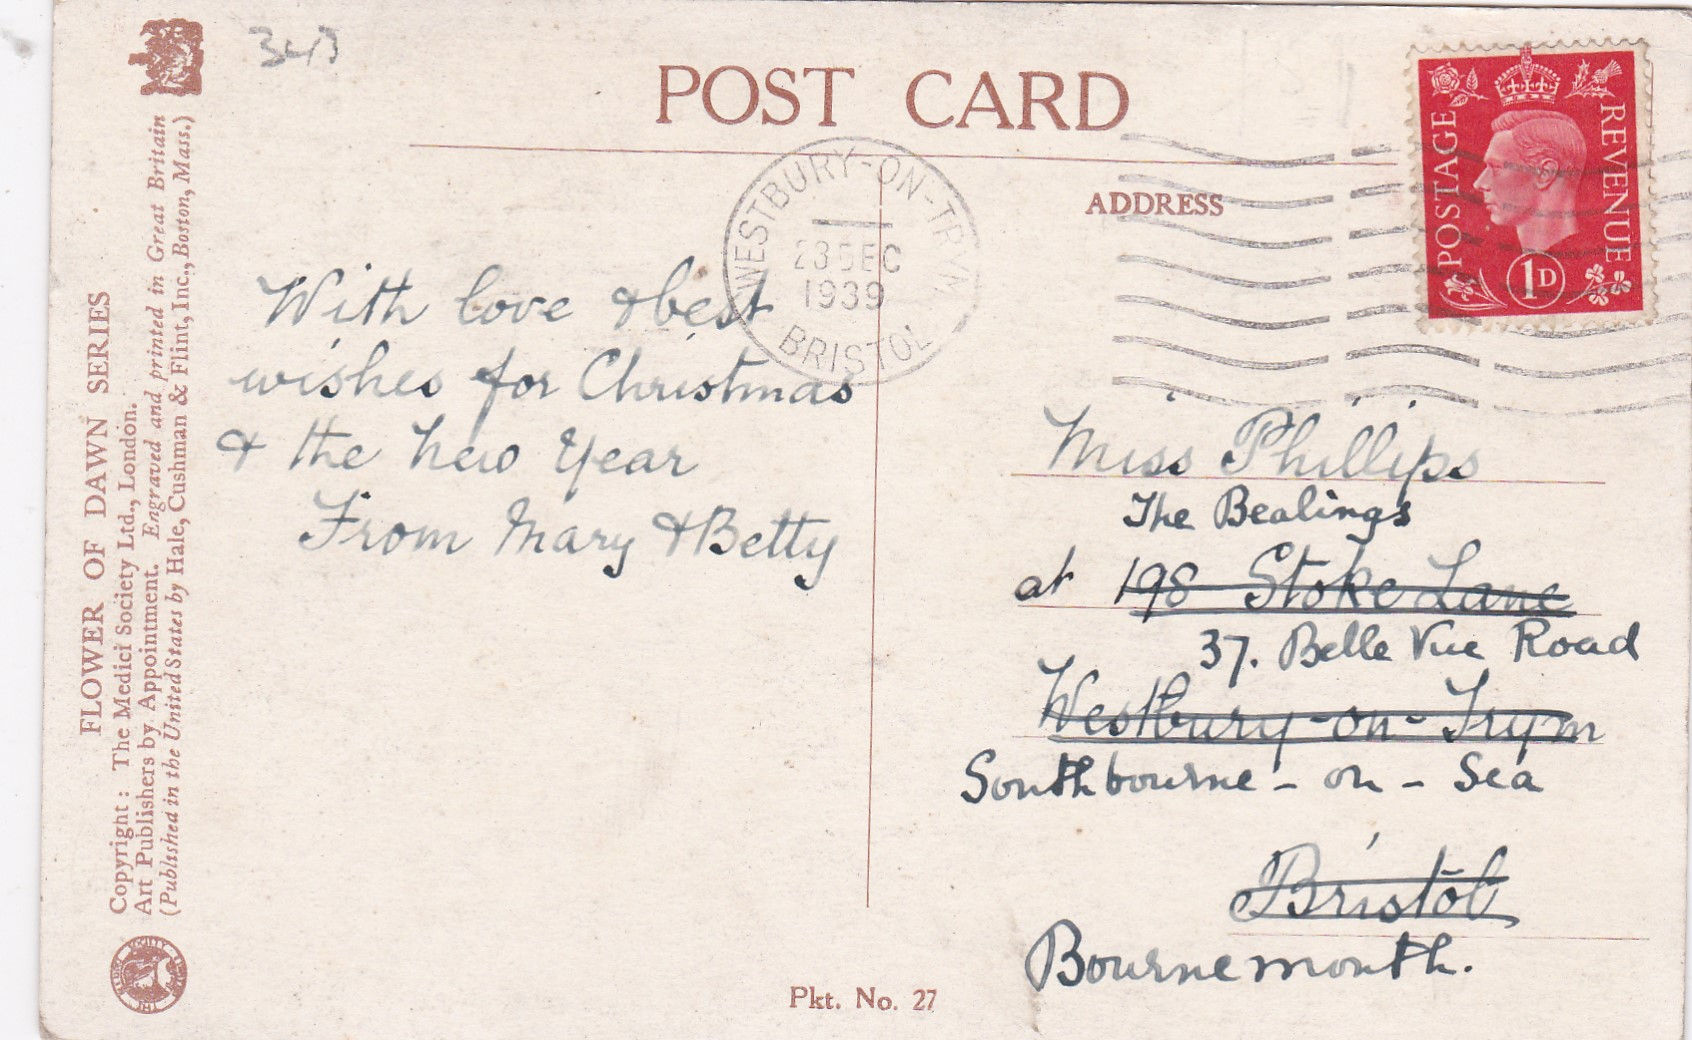 343
POST CARD
ADDRESS
POSTAGE
REVENUE
1D
WESTBURY-ON-TRYM
23 DEC
1939
BRISTOL
FLOWER OF DAWN SERIES
Copyright: The Medici Society Ltd., London.
Art Publishers by Appointment. Engraved and printed in Great Britain
(Published in the United States by Hale, Cushman & Flint, Inc., Boston, Mass.)
With love & best
wishes for Christmas
& the New Year
From Mary & Betty
Miss Phillips
The Bealings
at 198 Stoke Lane
37. Belle Vue Road
Westbury-on-Trym
Southbourne - on - Sea
Bristol
Bournemouth.
Pkt. No. 27